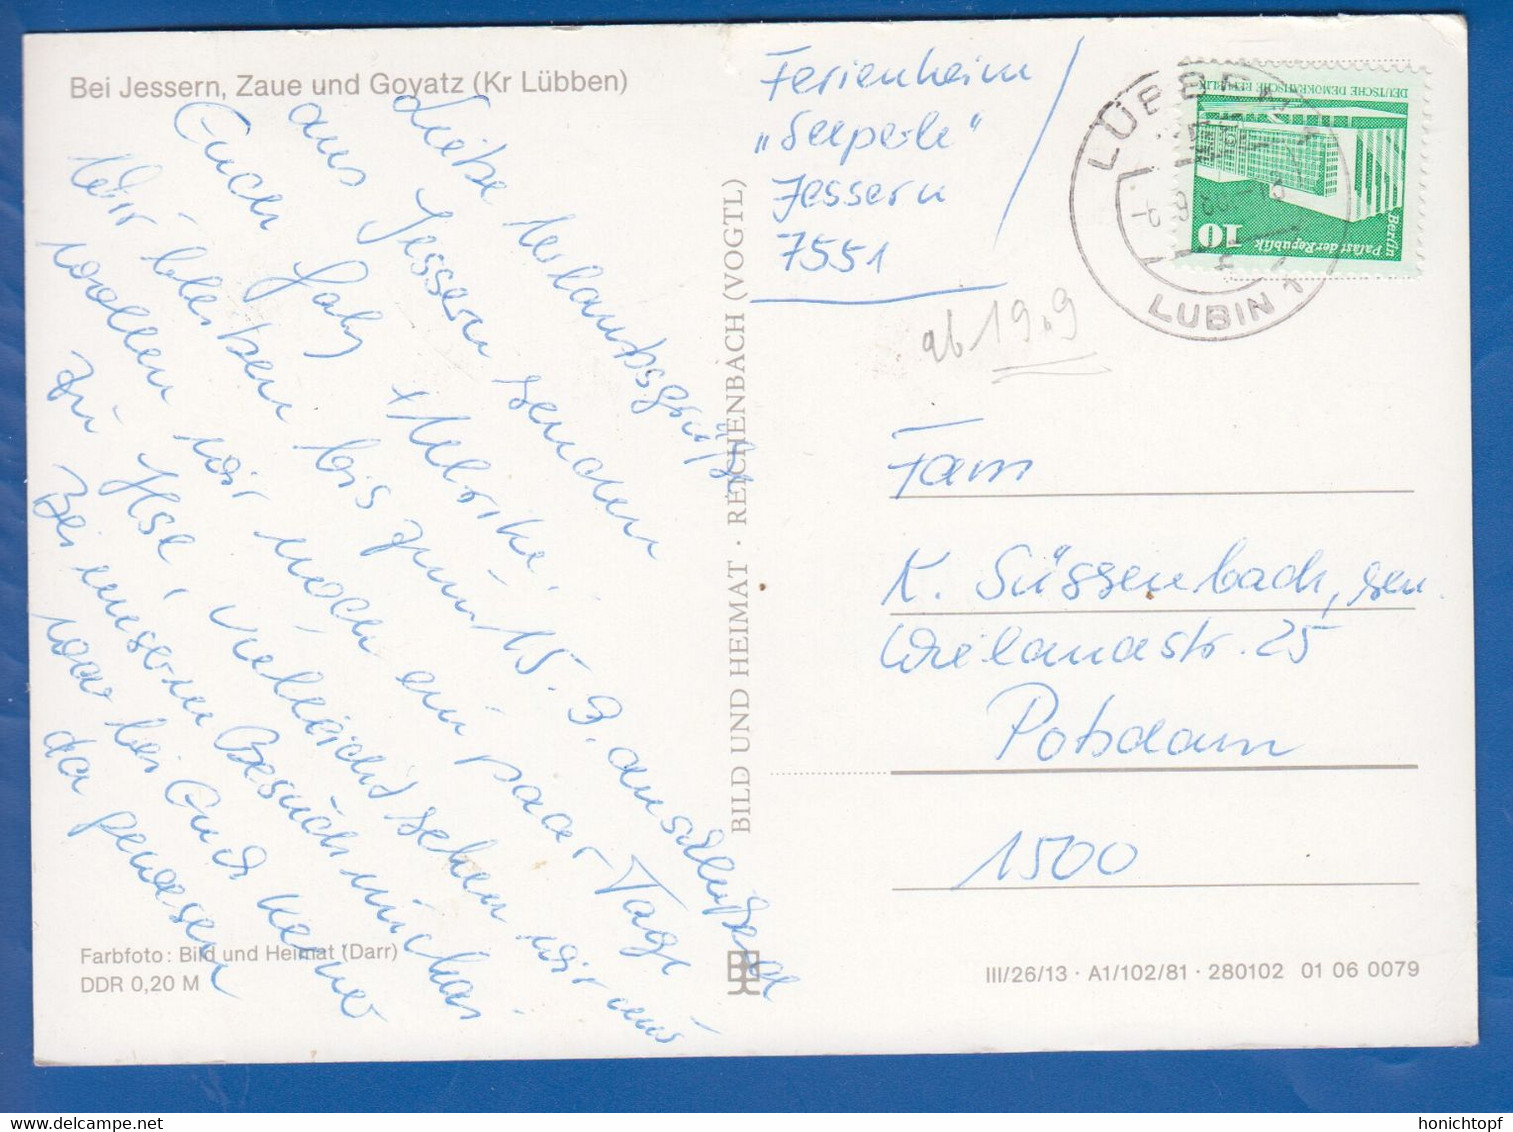 Bei Jessern, Zaue und Goyatz (Kr Lübben)
Liebe Urlaubsgrüße
aus Jessern senden
Euch Gaby + Ulrike.
Wir bleiben bis zum 15. 9. anschließend
wollen wir noch ein paar Tage
zu Ilse, vielleicht sehen wir uns
Bei unserem Besuch
war bei Euch keiner
da gewesen
Farbfoto: Bild und Heimat (Darr)
DDR 0,20 M
BILD UND HEIMAT · REICHENBACH (VOGTL)
Ferienheim
„Seeperle“
Jessern
7551
ab 19.9
LÜBBEN 1
LUBIN 1
DEUTSCHE DEMOKRATISCHE REPUBLIK
Berlin
Palast der Republik
10
Fam
K. Süssenbach, sen.
Wielandstr. 25
Potsdam
1500
III/26/13 · A1/102/81 · 280102 01 06 0079
honichtopf